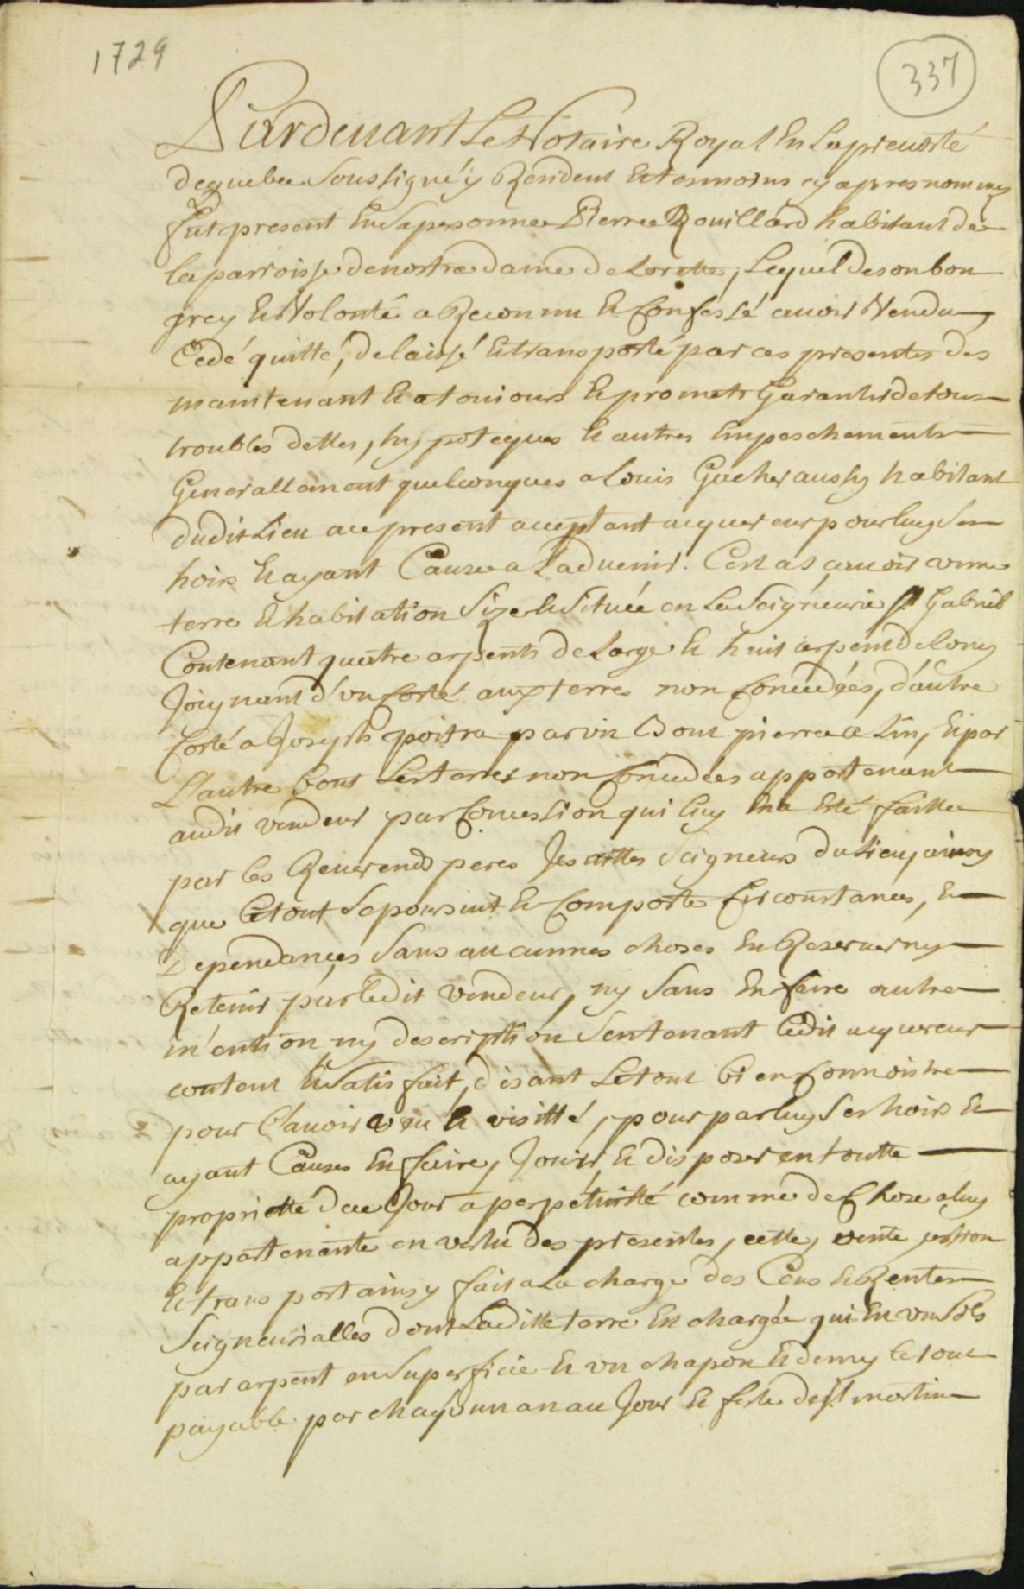 1729
337
Pardevant Le Notaire Royal En La prevosté
de quebec Soussigné y Resident Et temoins cy apres nommez
Fut present En Sa personne Pierre Rouillard habitant de
la parroisse de nostre dame de Lorette, Lequel de son bon
grey Et Volonté a Reconnu Et Confessé avoir Vendu
Cedé quitté, delaissé Et transporté par ces presentes des
maintenant Et a toujours Et promet Garantir de tous
troubles dettes, hypoteques Et autres Empeschements
Generallement quelconques a Louis Gacher aussy habitant
dudit Lieu a ce present acceptant acquereur pour luy Ses
hoirs Et ayant Cause a L'advenir. C'est a sçavoir une
terre Et habitation Size Et Située en La Seigneurie St Gabriel
Contenant quatre arpents de Large Et huit arpent de Long
Joignant d'un Costé aux terres non Concedées, d'autre
Costé a Joseph poitra par un Bout pierre a Lin, Et par
L'autre bout Les terres non Concedées appartenant
audit vendeur par Concession qui luy En a Esté faitte
par les Reverends peres Jesuittes Seigneurs du Lieu, ainsy
que Le tout Se poursuit Et Comporte Circonstances, Et
Dependances Sans aucunnes choses En Reserver ny
Retenir par Ledit Vendeur, ny Sans En faire autre
mention ny description S'en tenant Ledit acquereur
contant Et Satisfait, disant Le tout bien Connoistre
pour L'avoir veu Et visitté, pour par luy Ses hoirs Et
ayant Causes En faire, Jouir, Et disposer en toutte
proprietté de ce Jour a perpetuitté comme de Chose a luy
appartenante en vertu des presentes, cette vente, cession
Et transport ainsy fait a La charge des Cens Et Rentes
Seigneurialles dont Laditte terre Est chargée qui Est un Sols
par arpent en Superficie Et un chapon Et demy le tout
payable par chacun an au Jour Et feste de St martin